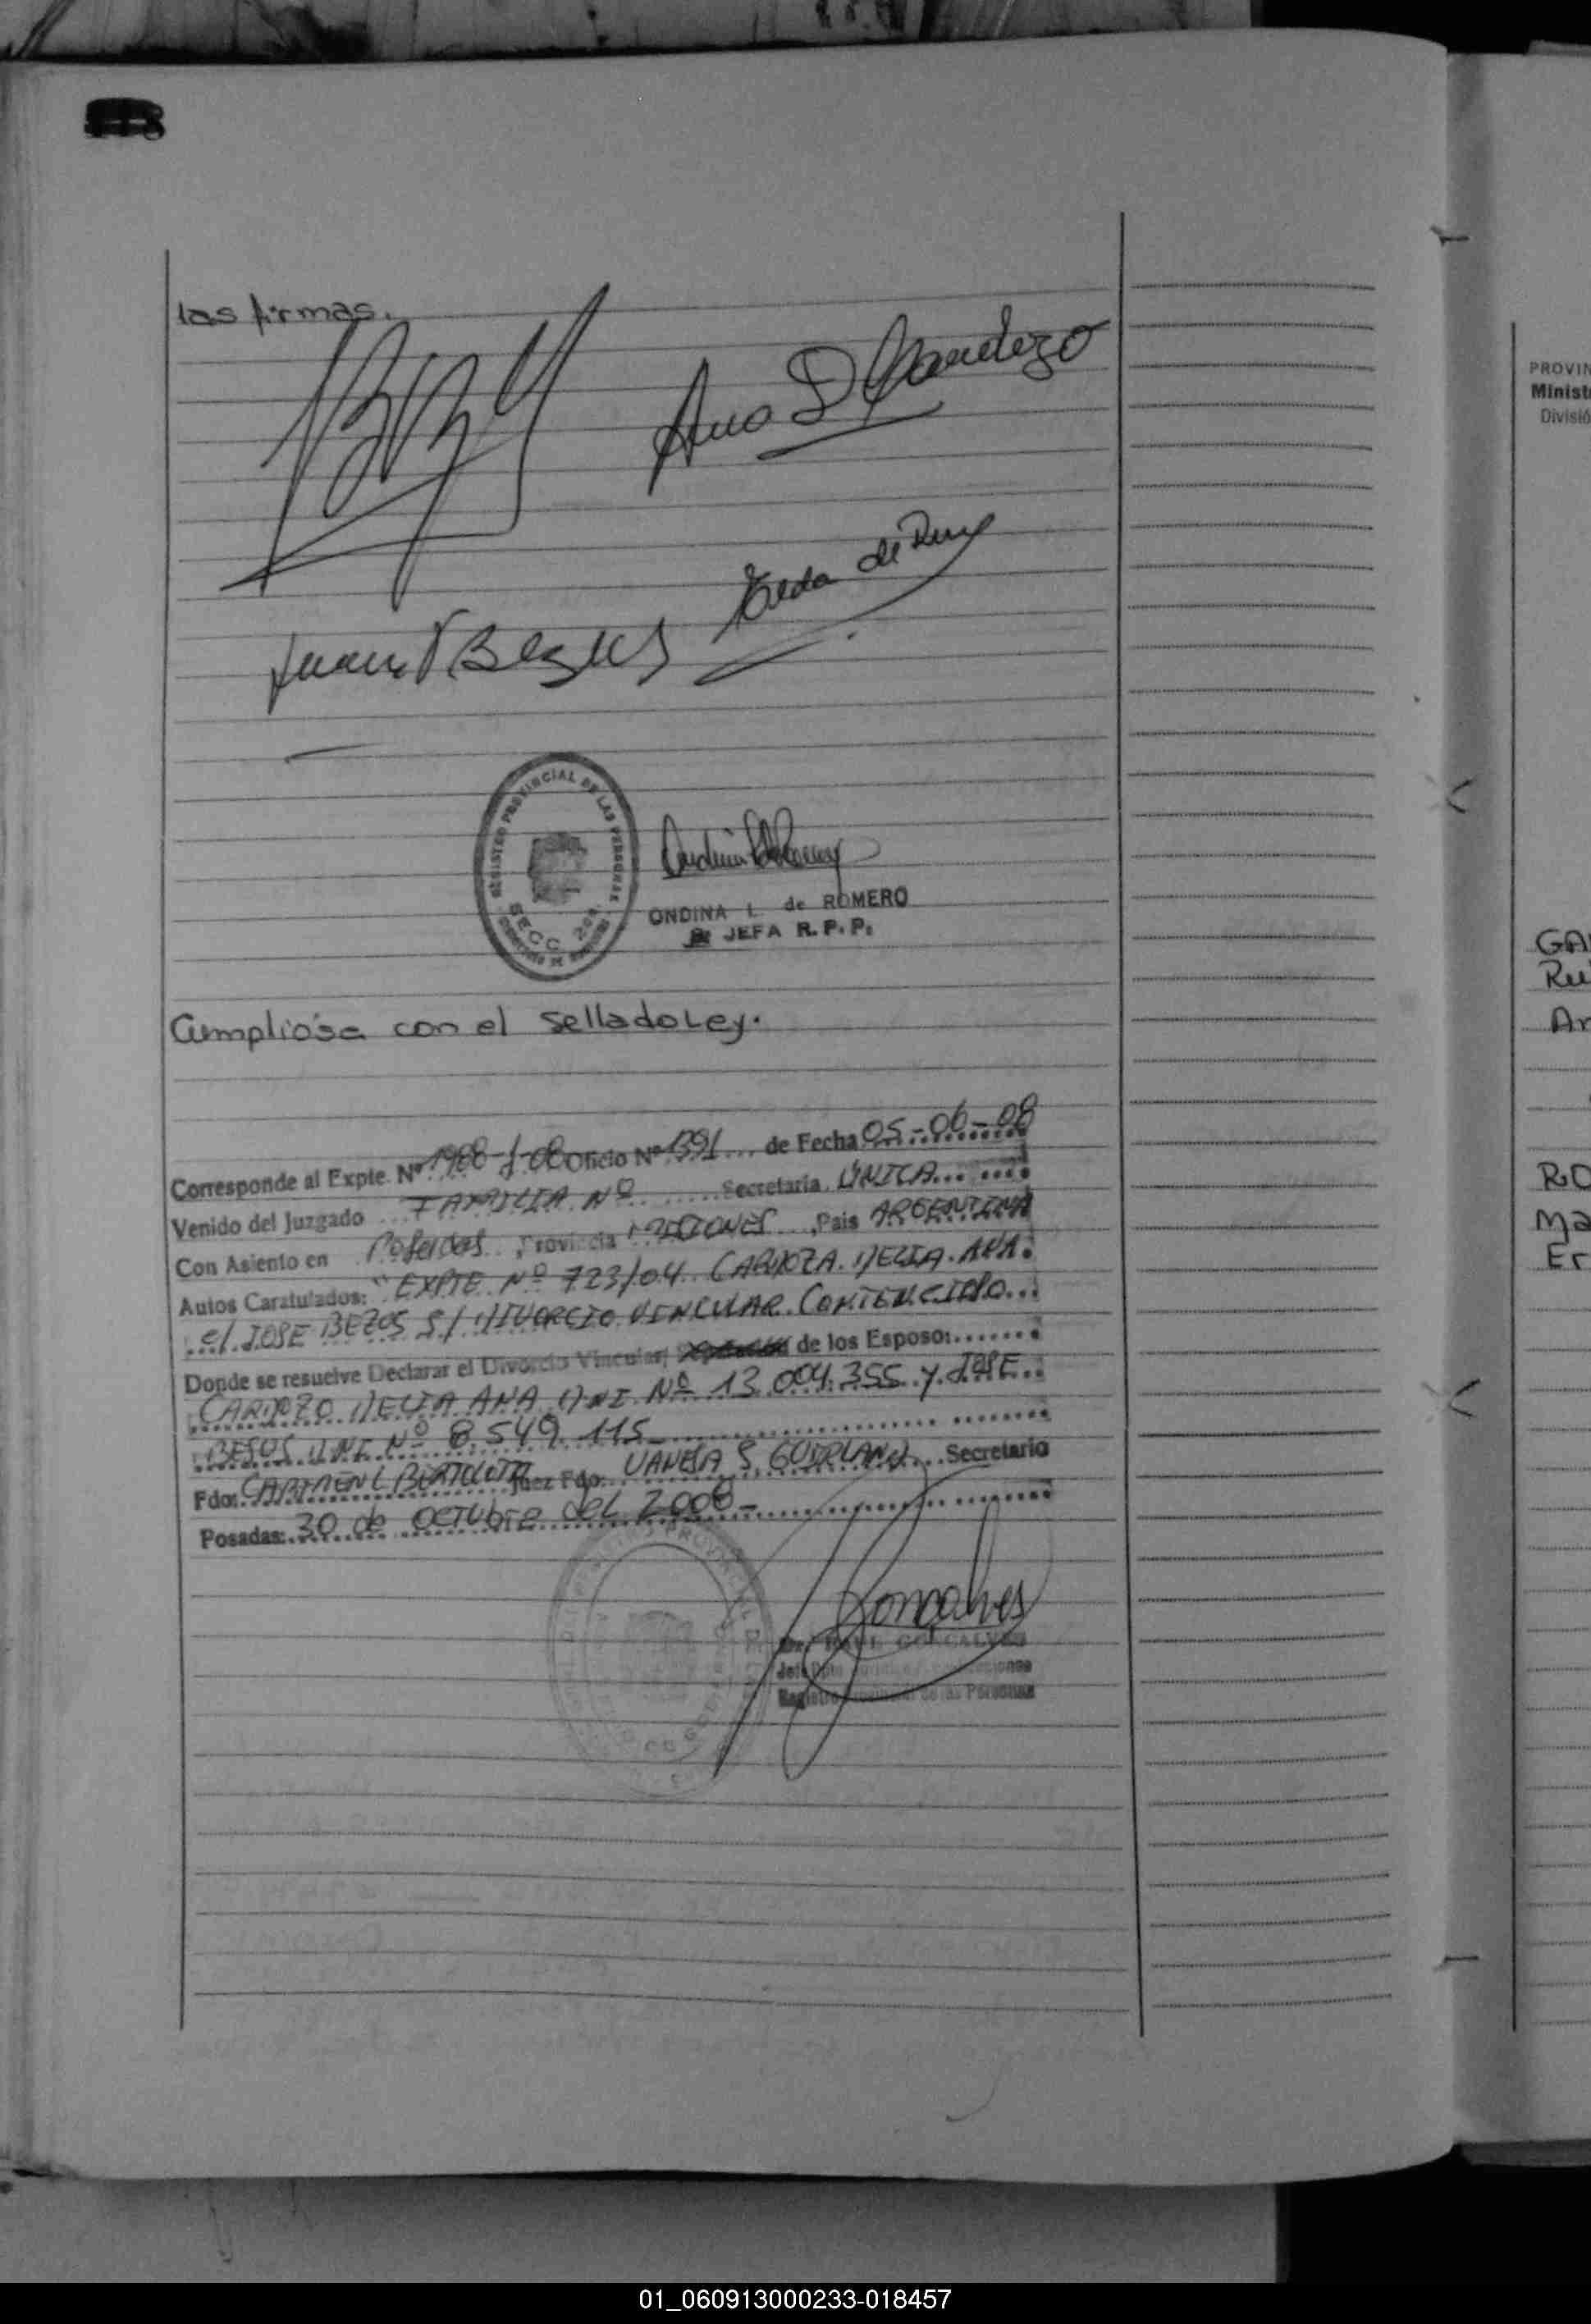 las firmas.
Ana D Cardozo
Elda de Ruy
Juan V Bezus
REGISTRO PROVINCIAL DE LAS PERSONAS
SECC
ONDINA L. de ROMERO
JEFA R.P.P.
Cumplióse con el selladoLey.
Corresponde al Expte. Nº 1988-J-08 Oficio Nº 1391 de Fecha 05-06-08
Venido del Juzgado FAMILIA Nº Secretaria UNICA
Con Asiento en Posadas, Provincia MISIONES, Pais ARGENTINA
Autos Caratulados: "EXPTE Nº 723/04 CARDOZA DELIA ANA
c/ JOSE BEZOS S/ DIVORCIO VINCULAR CONTENCIOSO
Donde se resuelve Declarar el Divorcio Vincular, de los Esposo:
CARDOZO DELIA ANA DNI Nº 13.004.355 y JOSE
BESUS DNI Nº 8.549.115
Fdo: CARMEN L BERTOLOTTI Juez Fdo: VANESA S. Secretario
Posadas: 30 de OCTUBRE del 2008-
Goncalves
RAUL GONCALVES
Registro Provincial de las Personas
PROVIN
Minist
Divisió
GA
Ru
An
RO
Ma
Er
01_060913000233-018457